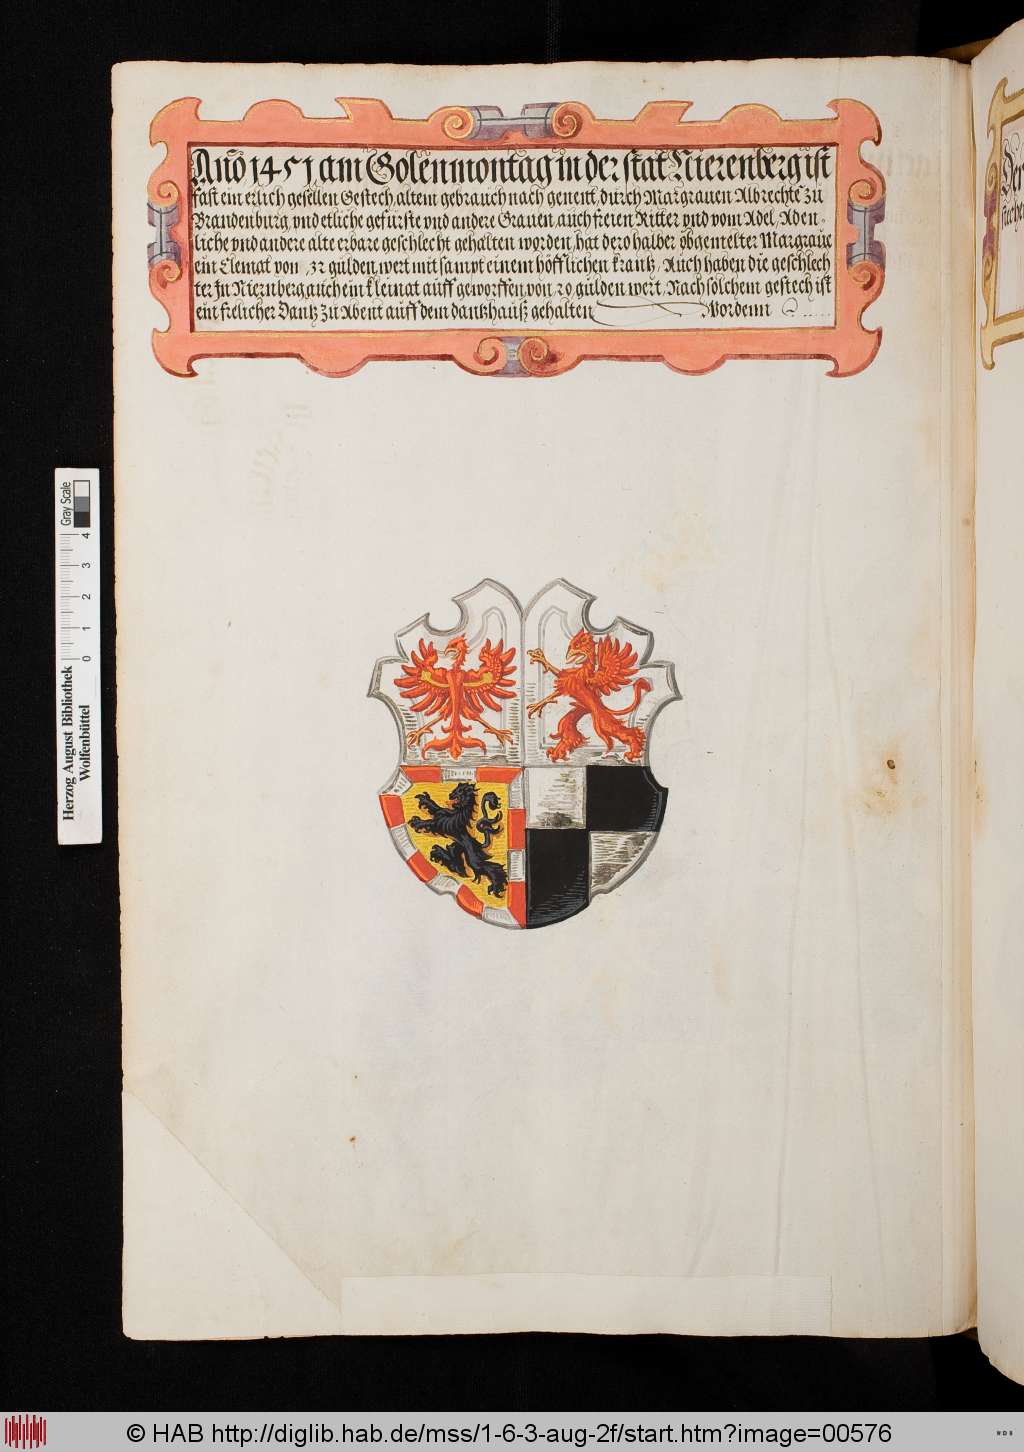 Año 1451 am Golenmontag in der stat Nierenberg ist
fast ein erlich gesellen Gestech, altem gebrauch nach genent, durch Margrauen Albrechts zu
Brandenburg, vnd etliche gefürste vnd andere Grauen, auch freien Ritter vnd vom Adel, Aden-
liche vnd andere alte erbare geschlecht gehalten worden, hat dero halber obgemelter Margraue
ein Clemat von 32 gulden wert mit sampt einem höfflichen krantz, Auch haben die geschlech
ter In Niernberg auch ein kleinat auff geworffen, von 20 gulden wert, Nach solchem gestech ist
ein frelicher Dantz zu Abent auff dem dantzhauß gehalten Wordenn
Der
Gray Scale
0 1 2 3 4
Herzog August Bibliothek
Wolfenbüttel
© HAB http://diglib.hab.de/mss/1-6-3-aug-2f/start.htm?image=00576